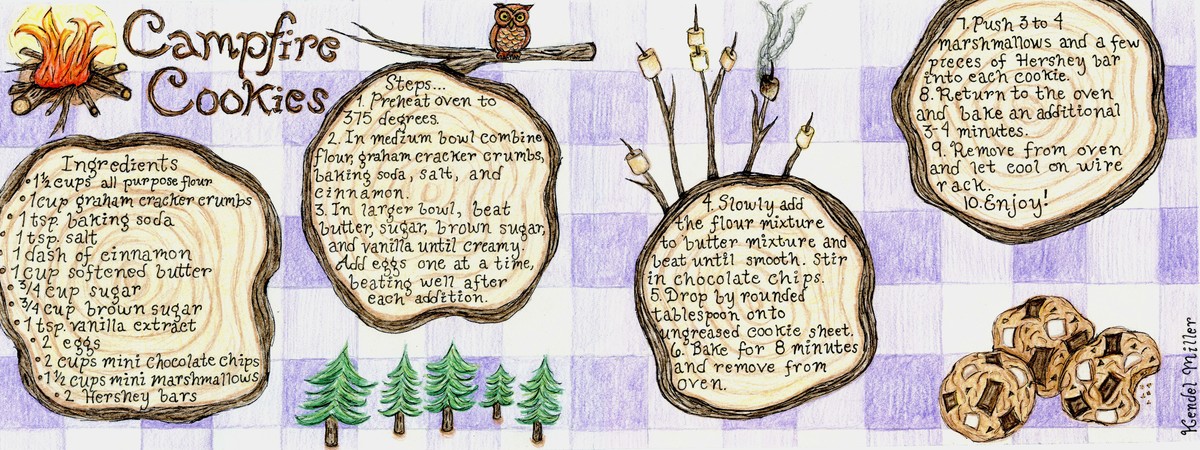 Campfire
Cookies
Ingredients
• 1½ cups all purpose flour
• 1 cup graham cracker crumbs
• 1 tsp. baking soda
• 1 tsp. salt
• 1 dash of cinnamon
• 1 cup softened butter
• 3/4 cup sugar
• 3/4 cup brown sugar
• 1 tsp. vanilla extract
• 2 eggs
• 2 cups mini chocolate chips
• 1½ cups mini marshmallows
• 2 Hershey bars
Steps...
1. Preheat oven to
375 degrees.
2. In medium bowl combine
flour, graham cracker crumbs,
baking soda, salt, and
cinnamon.
3. In larger bowl, beat
butter, sugar, brown sugar,
and vanilla until creamy.
Add eggs one at a time,
beating well after
each addition.
4. Slowly add
the flour mixture
to butter mixture and
beat until smooth. Stir
in chocolate chips.
5. Drop by rounded
tablespoon onto
ungreased cookie sheet.
6. Bake for 8 minutes
and remove from
oven.
7. Push 3 to 4
marshmallows and a few
pieces of Hershey bar
into each cookie.
8. Return to the oven
and bake an additional
3-4 minutes.
9. Remove from oven
and let cool on wire
rack.
10. Enjoy!
Kendel Miller